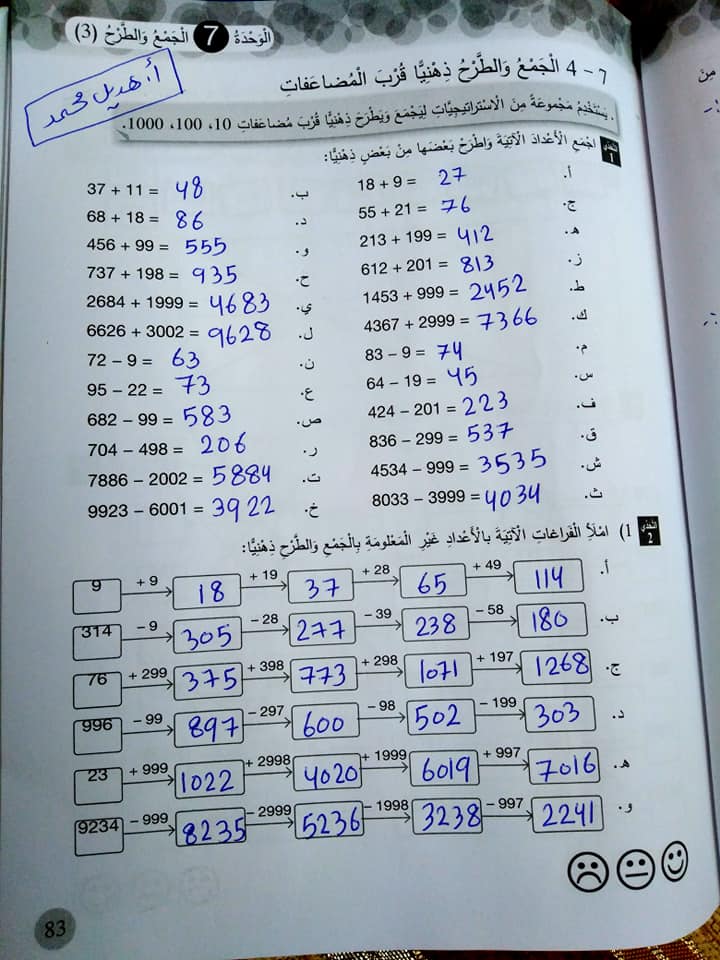 الوَحْدَةُ 7 الجَمْعُ وَالطَّرْحُ (3)
أ. هديل محمد
7 – 4 الْجَمْعُ وَالطَّرْحُ ذِهْنِيًّا قُرْبَ الْمُضاعَفاتِ
. يَسْتَخْدِمُ مَجْموعَةً مِنَ الاسْتراتيجِيّاتِ لِيَجْمَعَ وَيَطْرَحَ ذِهْنِيًّا قُرْبَ مُضاعَفاتِ 10، 100، 1000.
التحدّي 1 اجْمَعِ الْأَعْدادَ الْآتِيَةَ وَاطْرَحْ بَعْضَها مِنْ بَعْضٍ ذِهْنِيًّا:
أ. 18 + 9 = 27 ب. 37 + 11 = 48
ج. 55 + 21 = 76 د. 68 + 18 = 86
هـ. 213 + 199 = 412 و. 456 + 99 = 555
ز. 612 + 201 = 813 ح. 737 + 198 = 935
ط. 1453 + 999 = 2452 ي. 2684 + 1999 = 4683
ك. 4367 + 2999 = 7366 ل. 6626 + 3002 = 9628
م. 83 – 9 = 74 ن. 72 – 9 = 63
س. 64 – 19 = 45 ع. 95 – 22 = 73
ف. 424 – 201 = 223 ص. 682 – 99 = 583
ق. 836 – 299 = 537 ر. 704 – 498 = 206
ش. 4534 – 999 = 3535 ت. 7886 – 2002 = 5884
ث. 8033 – 3999 = 4034 خ. 9923 – 6001 = 3922
التحدّي 2 1) امْلَأِ الْفَراغاتِ الْآتِيَةَ بِالْأَعْدادِ غَيْرِ الْمَعْلومَةِ بِالْجَمْعِ وَالطَّرْحِ ذِهْنِيًّا:
أ. 9 + 9 18 + 19 37 + 28 65 + 49 114
ب. 314 – 9 305 – 28 277 – 39 238 – 58 180
ج. 76 + 299 375 + 398 773 + 298 1071 + 197 1268
د. 996 – 99 897 – 297 600 – 98 502 – 199 303
هـ. 23 + 999 1022 + 2998 4020 + 1999 6019 + 997 7016
و. 9234 – 999 8235 – 2999 5236 – 1998 3238 – 997 2241
83